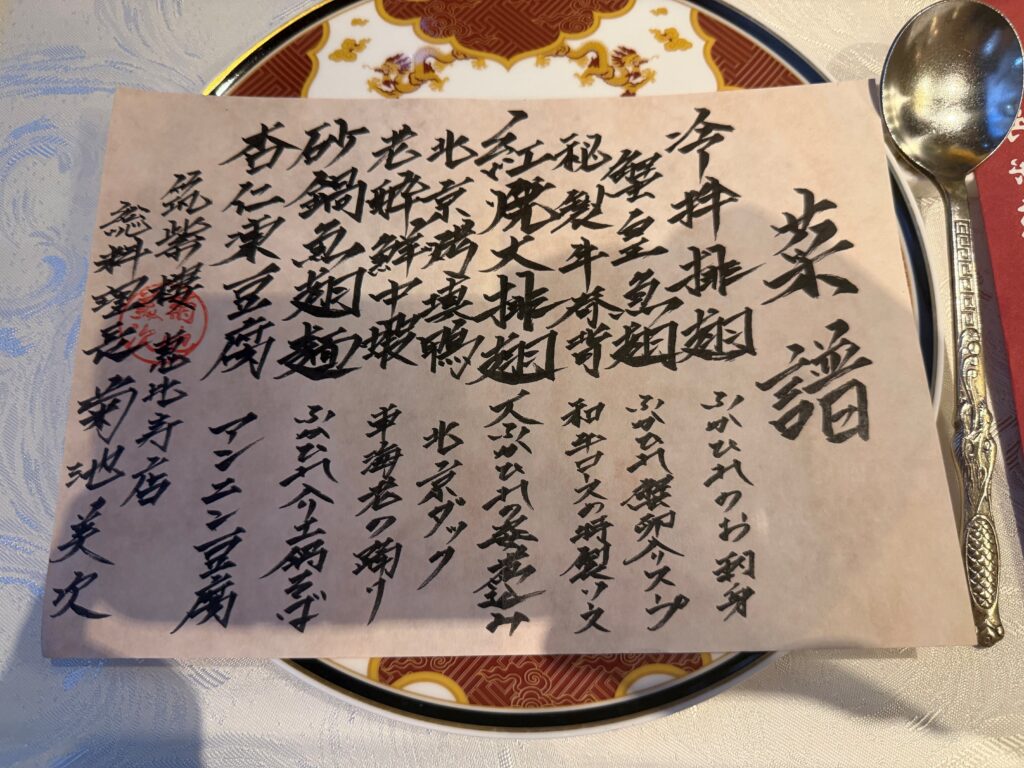 菜譜
冷拌排翅 ふかひれのお刺身
蟹皇魚翅 ふかひれ蟹卵入りスープ
秘製牛脊背 和牛ロースの特製ソース
紅焼大排翅 大ふかひれの姿煮込み
北京烤填鴨 北京ダック
老酔鮮中蝦 車海老の踊り
砂鍋魚翅麺 ふかひれ入り土鍋そば
杏仁凍豆腐 アンニン豆腐
筑紫樓 恵比寿店
総料理長 菊池美次